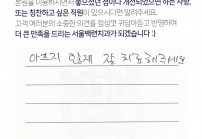 본원을 이용하시면서 좋으셨던 점이나 개선되었으면 하는 사항,
또는 칭찬하고 싶은 직원이 있으시다면 알려주세요.
고객 여러분의 소중한 의견을 정성껏 귀담아듣고 반영하여
더 큰 만족을 드리는 서울백련치과가 되겠습니다 :)
아프지 않게 잘 치료해주세요